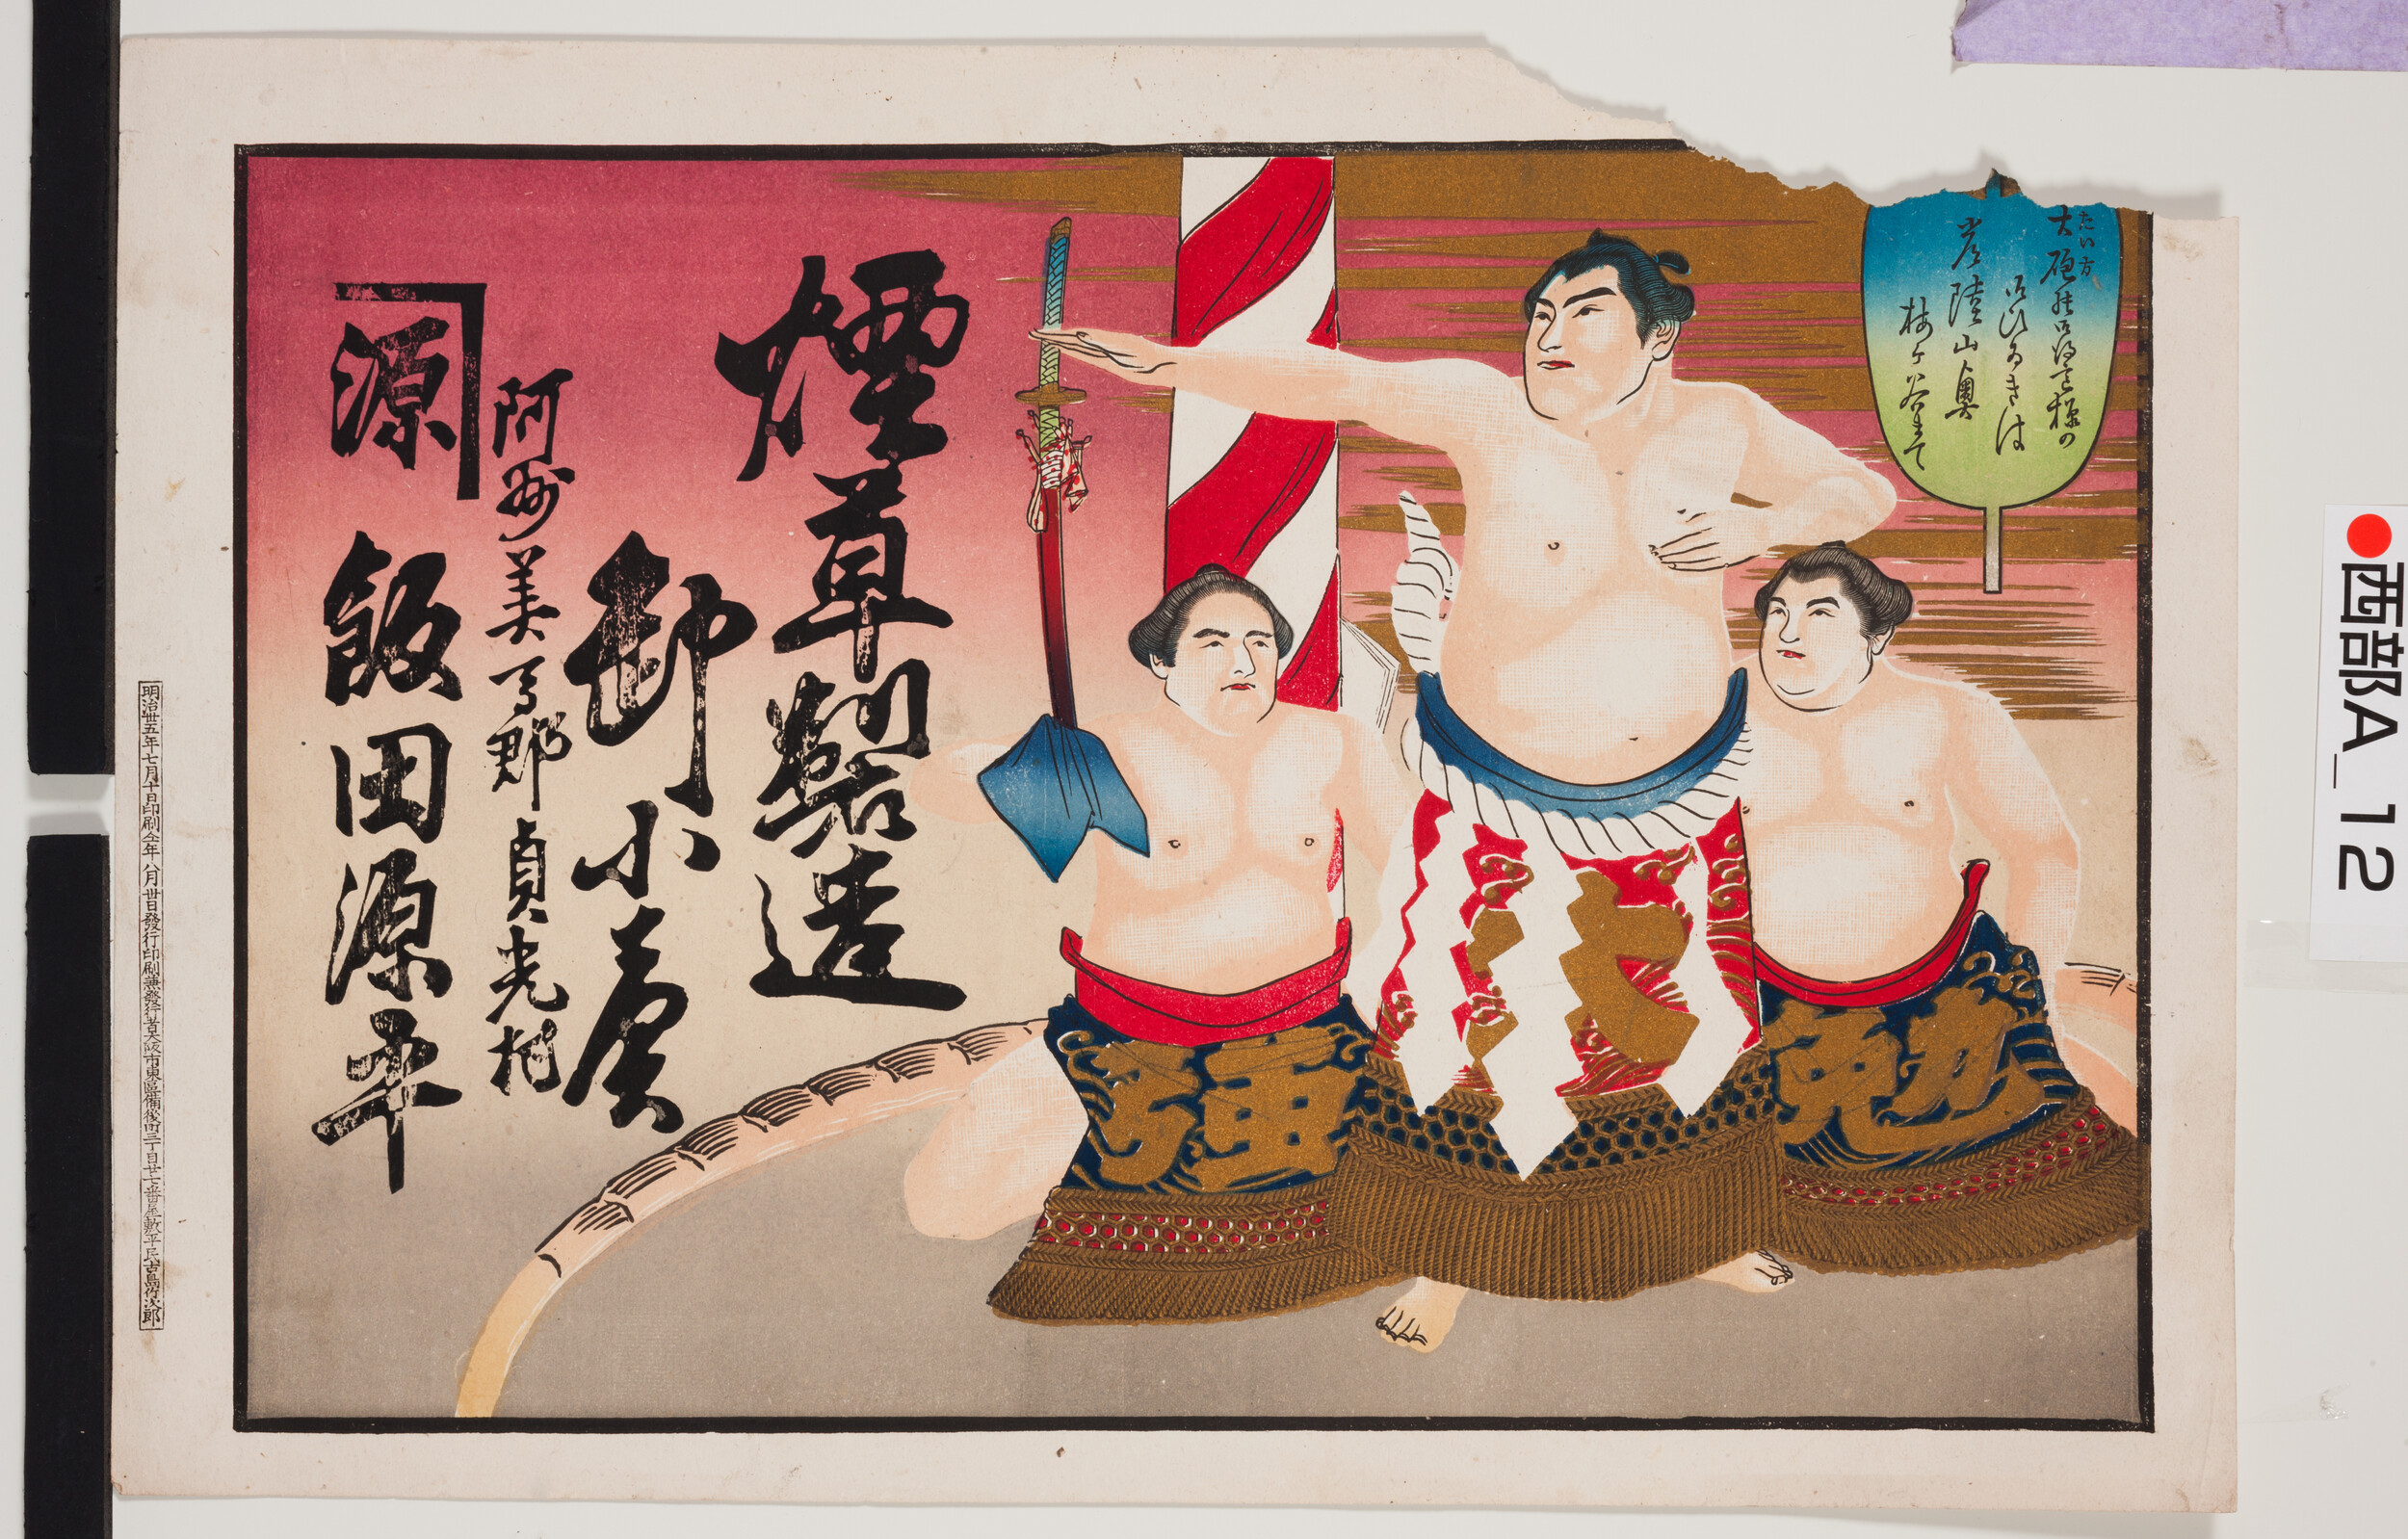 大砲
御ひゐきは
常陸山奥
梅ヶ谷まて
煙草製造
卸小賣
阿州美馬郡貞光村
源
飯田源平
明治卅五年七月十日印刷仝年八月廿日發行印刷兼發行者大阪市東區備後町三丁目廿七番屋敷平民古島竹次郎
西部A_12